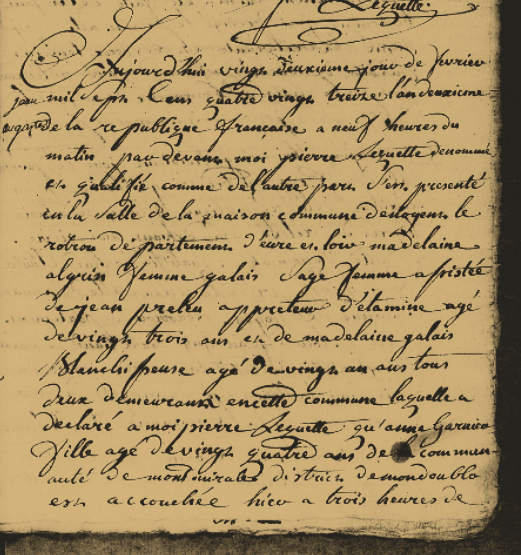 Lequette
Aujourd'hui vingt deuxieme jour de fevrier
mil Sept Cens quatre vingt treize l'an deuxieme
de la republique francaise a neuf heures du
matin par devant moi pierre Lequette denommé
et qualifié comme de l'autre part S'est presenté
en la Salle de la maison commune de nogent le
rotrou departement d'eure et loir madelaine
algrin femme galais Sage femme assistée
de jean preleu appreteur d'étamine agé
de vingt trois ans et de madelaine galais
Blanchisseuse agé de vingt un ans tous
deux demeurant en cette commune laquelle a
declaré a moi pierre Lequette qu'anne Garnier
fille agé de vingt quatre ans de la commun-
auté de montmirail district de mondoublo
est accouchée hier a trois heures de